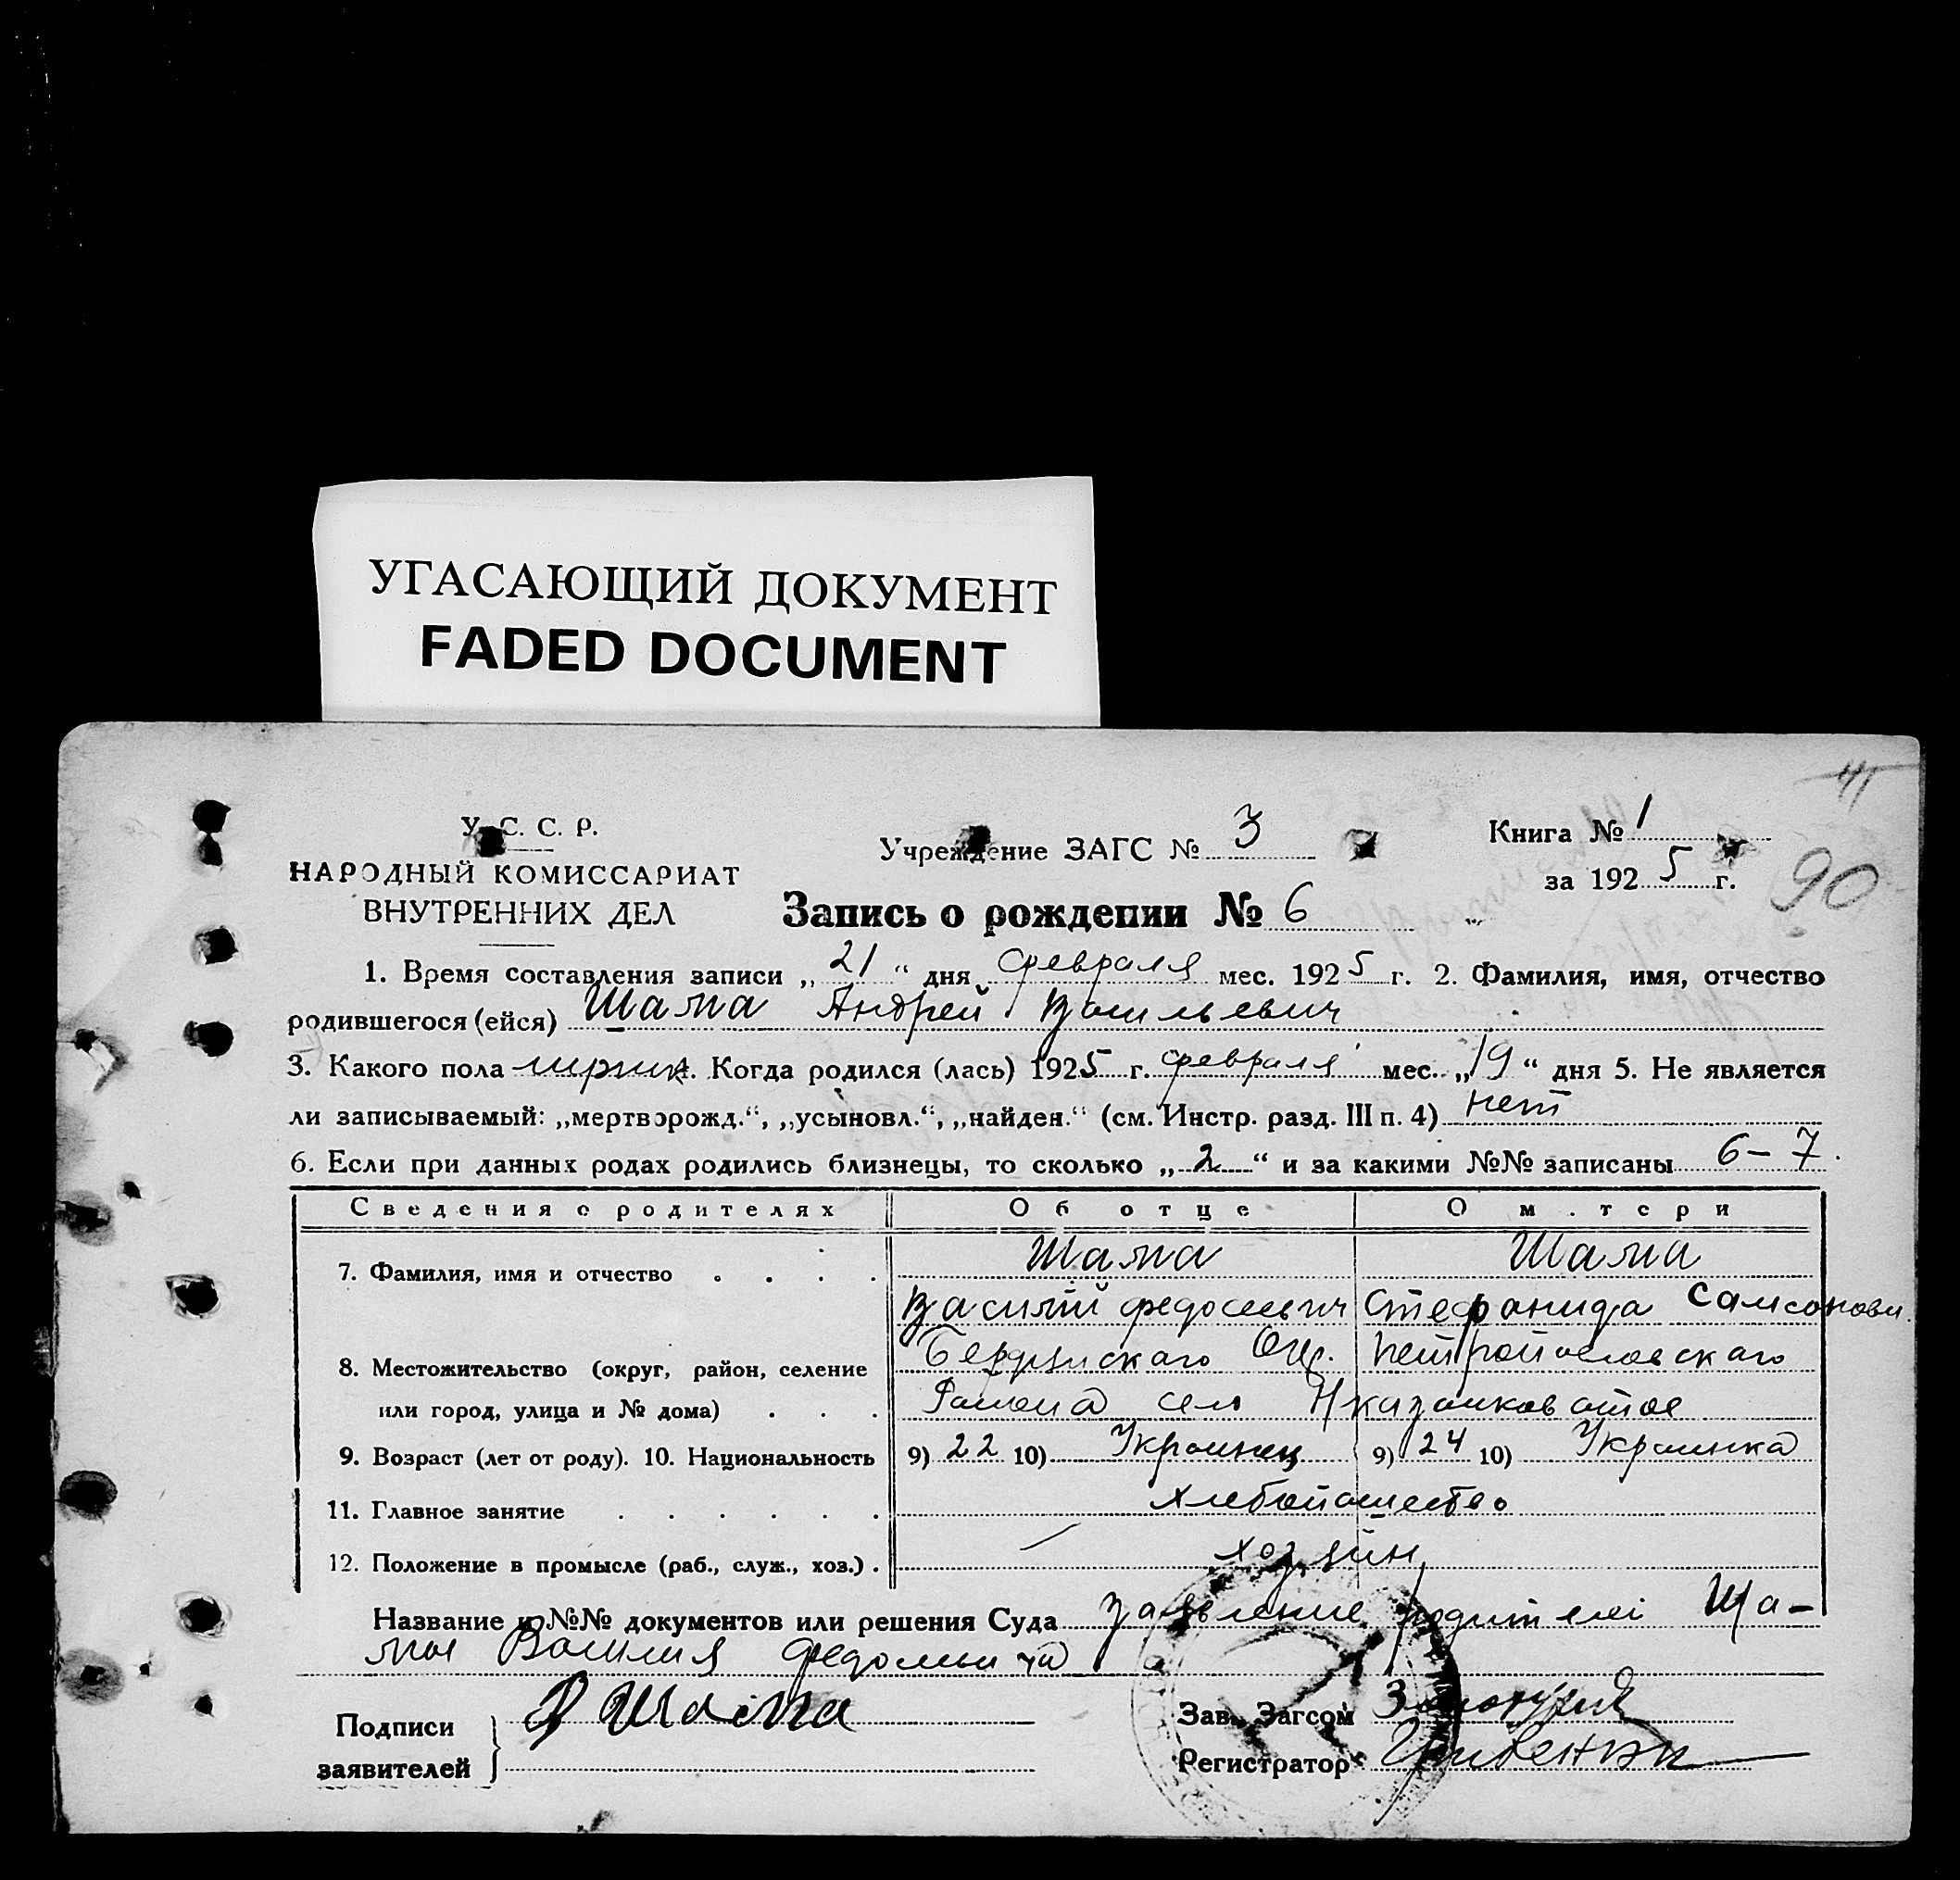 УГАСАЮЩИЙ ДОКУМЕНТ
FADED DOCUMENT
41
У. С. С. Р.
НАРОДНЫЙ КОМИССАРИАТ
ВНУТРЕННИХ ДЕЛ
Учреждение ЗАГС № 3
Книга № 1
за 1925 г.
90
Запись о рождении № 6
1. Время составления записи „ 21 “ дня февраля мес. 1925 г. 2. Фамилия, имя, отчество
родившегося (ейся) Шама Андрей Васильевич
3. Какого пола Когда родился (лась) 1925 г. февраля мес. „19“ дня 5. Не является
ли записываемый: „мертворожд.“, „усыновл.“, „найден.“ (см. Инстр. разд. III п. 4) нет
6. Если при данных родах родились близнецы, то сколько „ 2 “ и за какими №№ записаны 6–7.
Сведения о родителях Об отце О м.тери
7. Фамилия, имя и отчество Шама Шама
Василий Федосеевич Стефанида Самсонови.
8. Местожительство (округ, район, селение Окр. Петропавловскаго
или город, улица и № дома) Района село
9. Возраст (лет от роду). 10. Национальность 9) 22 10) Украинец 9) 24 10) Украинка
11. Главное занятие хлебопашество
12. Положение в промысле (раб., служ., хоз.) хозяин
Название и №№ документов или решения Суда заявление родителей Ша-
мы Василия Федосеевича
Подписи
заявителей
В Шама
Зав. Загсом
Регистратор